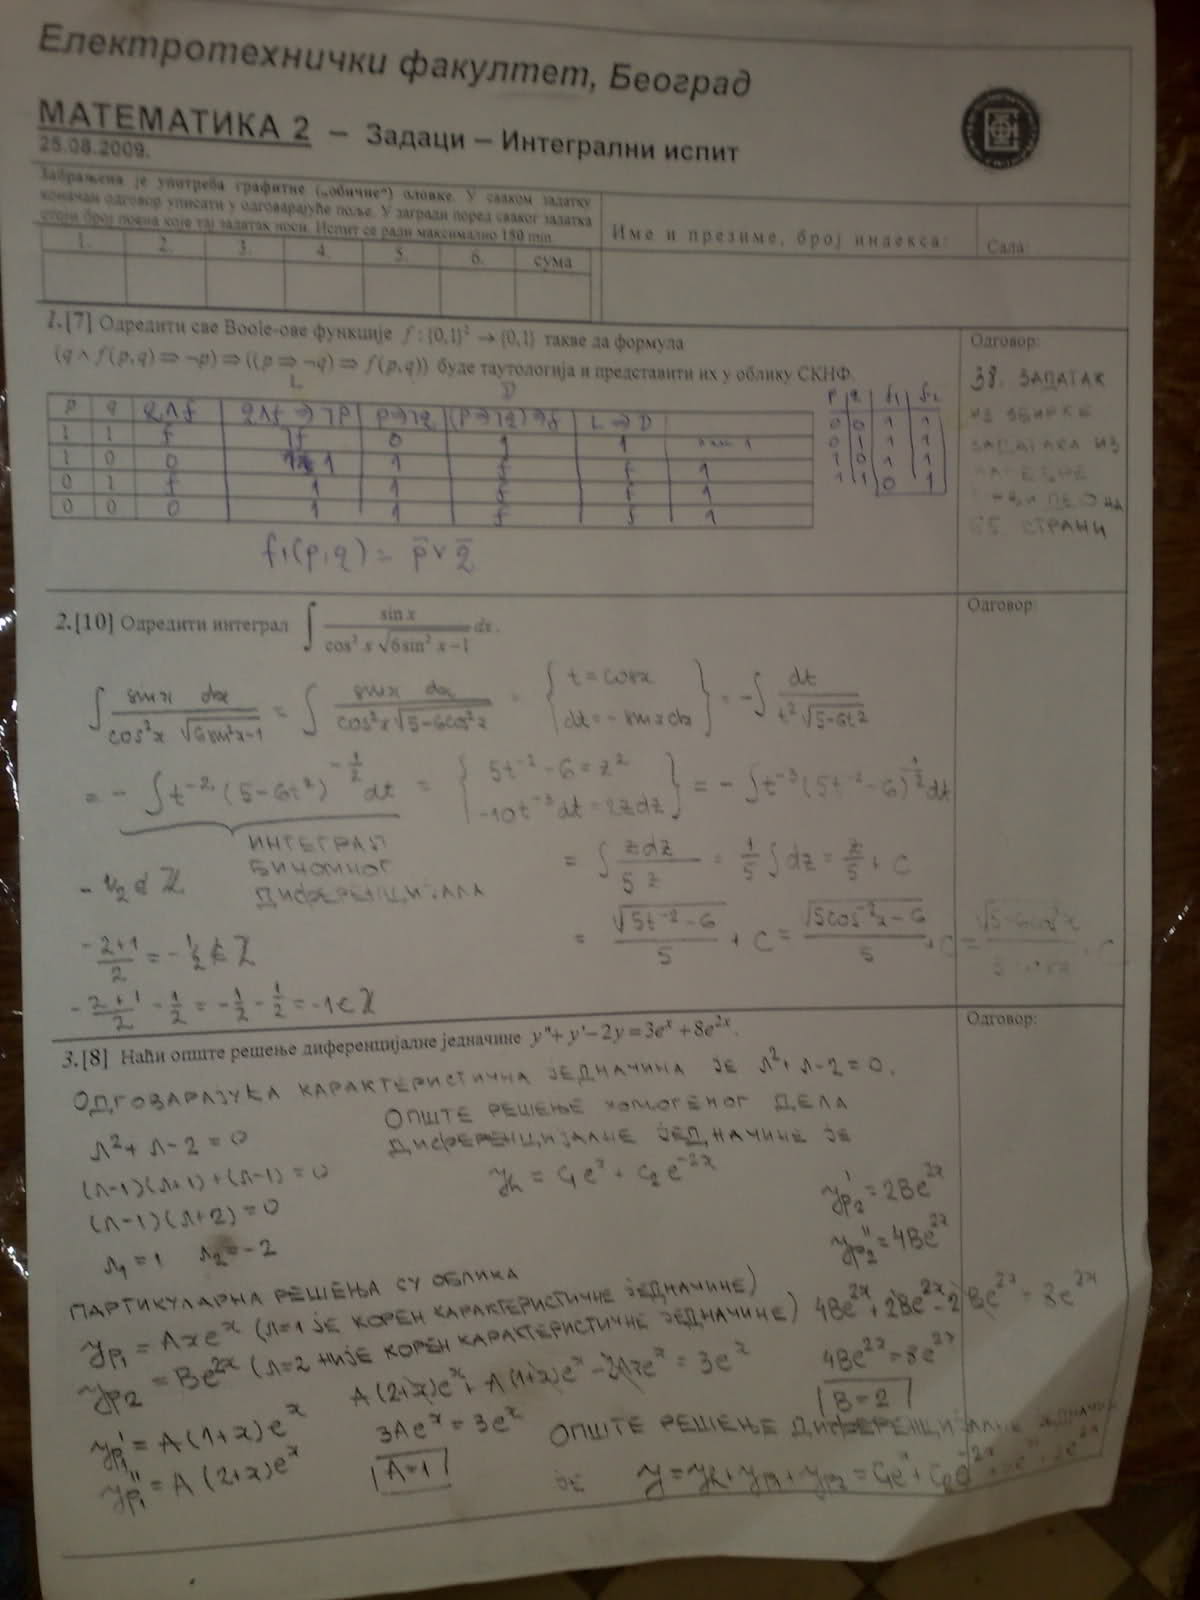 Електротехнички факултет, Београд
МАТЕМАТИКА 2 – Задаци – Интегрални испит
25.08.2009.
Забрањена је употреба графитне („обичне“) оловке. У сваком задатку
коначан одговор уписати у одговарајуће поље. У загради поред сваког задатка
стоји број поена које тај задатак носи. Испит се ради максимално 150 min.
Име и презиме, број индекса:
Сала:
1. 2. 3. 4. 5. 6. сума
1.[7] Одредити све Boole-ове функције f : {0,1}² → {0,1} такве да формула
(q ∧ f(p,q) ⇒ ¬p) ⇒ ((p ⇒ ¬q) ⇒ f(p,q)) буде таутологија и представити их у облику СКНФ.
Одговор:
38. ЗАДАТАК
ИЗ ЗБИРКЕ
ЗАДАТАКА ИЗ
СТРАНИ
L D
p q q∧f q∧f ⇒ ⌉p p⇒⌉q (p⇒⌉q)⇒f L⇒D
1 1 f ⌉f 0 1 1
1 0 0 1 1 f f 1
0 1 f 1 1 f f 1
0 0 0 1 1 f f 1
p q f₁ f₂
0 0 1 1
0 1 1 1
1 0 1 1
1 1 0 1
f₁(p,q) = p̅ ∨ q̅
2.[10] Одредити интеграл ∫ sin x / (cos² x √(6sin² x −1)) dx.
Одговор:
∫ sinx dx / (cos²x √(6sin²x−1)) = ∫ sinx dx / (cos²x √(5−6cos²x)) = { t = cosx dt = −sinxdx } = −∫ dt / (t²√(5−6t²))
= − ∫ t⁻² (5−6t²)^(−1/2) dt = { 5t⁻²−6 = z² −10t⁻³dt = 2zdz } = − ∫ t⁻³ (5t⁻²−6)^(−1/2) dt
ИНТЕГРАЛ
БИНОМНОГ
ДИФЕРЕНЦИЈАЛА
= ∫ zdz / (5 z) = 1/5 ∫ dz = z/5 + c
−1/2 ∉ Z
(−2+1)/2 = −1/2 ∉ Z
= √(5t⁻²−6) / 5 + C = √(5cos⁻²x−6) / 5 + C = √(5−6cos²x)
−2+1/2 − 1/2 = −1/2 − 1/2 = −1 ∈ Z
3.[8] Наћи опште решење диференцијалне једначине y''+ y'−2y = 3eˣ + 8e²ˣ.
Одговор:
ОДГОВАРАЈУЋА КАРАКТЕРИСТИЧНА ЈЕДНАЧИНА ЈЕ λ²+ λ−2 = 0.
λ²+ λ−2 = 0
(λ−1)(λ+1)+(λ−1) = 0
(λ−1)(λ+2) = 0
λ₁ = 1 λ₂ = −2
ОПШТЕ РЕШЕЊЕ ХОМОГЕНОГ ДЕЛА
ДИФЕРЕНЦИЈАЛНЕ ЈЕДНАЧИНЕ ЈЕ
yₕ = C₁eˣ + C₂e⁻²ˣ
y'p₂ = 2Be²ˣ
y''p₂ = 4Be²ˣ
ПАРТИКУЛАРНА РЕШЕЊА СУ ОБЛИКА
yp₁ = Axeˣ (λ=1 ЈЕ КОРЕН КАРАКТЕРИСТИЧНЕ ЈЕДНАЧИНЕ)
yp₂ = Be²ˣ (λ=2 НИЈЕ КОРЕН КАРАКТЕРИСТИЧНЕ ЈЕДНАЧИНЕ)
4Be²ˣ + 2Be²ˣ − 2Be²ˣ = 8e²ˣ
4Be²ˣ = 8e²ˣ
B = 2
y'p₁ = A(1+x)eˣ
y''p₁ = A(2+x)eˣ
A(2+x)eˣ + A(1+x)eˣ − 2Axeˣ = 3eˣ
3Aeˣ = 3eˣ
A = 1
ОПШТЕ РЕШЕЊЕ ДИФЕРЕНЦИЈАЛНЕ ЈЕДНАЧИНЕ
ЈЕ y = yₕ + yp₁ + yp₂ = C₁eˣ + C₂e⁻²ˣ + xeˣ + 2e²ˣ